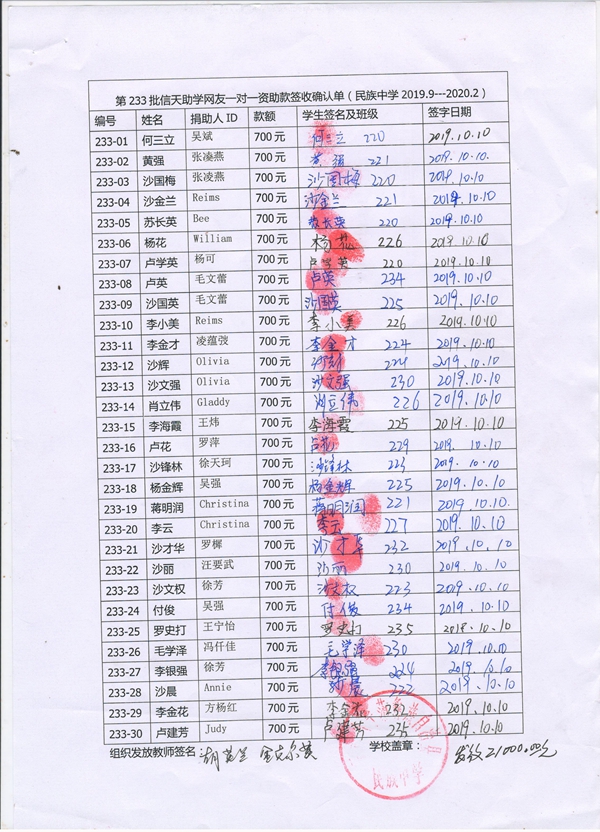 第 233 批信天助学网友一对一资助款签收确认单（民族中学 2019.9---2020.2）
编号 姓名 捐助人 ID 款额 学生签名及班级 签字日期
233-01 何三立 吴斌 700 元 何三立 220 2019.10.10
233-02 黄强 张凌燕 700 元 黄强 221 2019.10.10.
233-03 沙国梅 张凌燕 700 元 沙国梅 220 2019.10.10
233-04 沙金兰 Reims 700 元 沙金兰 221 2019.10.10
233-05 苏长英 Bee 700 元 苏长英 220 2019.10.10
233-06 杨花 William 700 元 杨花 226 2019.10.10
233-07 卢学英 杨可 700 元 卢学英 220 2019.10.10
233-08 卢英 毛文蕾 700 元 卢英 234 2019.10.10
233-09 沙国英 毛文蕾 700 元 沙国英 225 2019.10.10
233-10 李小美 Reims 700 元 李小美 226 2019.10.10
233-11 李金才 凌蕴弢 700 元 李金才 224 2019.10.10
233-12 沙辉 Olivia 700 元 2019.10.10
233-13 沙文强 Olivia 700 元 沙文强 230 2019.10.10
233-14 肖立伟 Gladdy 700 元 肖立伟 226 2019.10.10
233-15 李海霞 王炜 700 元 李海霞 225 2019.10.10
233-16 卢花 罗萍 700 元 229 2019.10.10
233-17 沙锋林 徐天珂 700 元 沙锋林 223 2019.10.10
233-18 杨金辉 吴强 700 元 杨金辉 225 2019.10.10
233-19 蒋明润 Christina 700 元 蒋明润 221 2019.10.10
233-20 李云 Christina 700 元 李云 227 2019.10.10
233-21 沙才华 罗樨 700 元 沙才华 232 2019.10.10
233-22 沙丽 汪要武 700 元 沙丽 230 2019.10.10
233-23 沙文权 徐芳 700 元 沙文权 223 2019.10.10
233-24 付俊 吴强 700 元 付俊 234 2019.10.10
233-25 罗史打 王宁怡 700 元 罗史打 235 2019.10.10
233-26 毛学泽 冯仟佳 700 元 毛学泽 230 2019.10.10
233-27 李银强 徐芳 700 元 李银强 224 2019.10.10
233-28 沙晨 Annie 700 元 222 2019.10.10
233-29 李金花 方杨红 700 元 李金花 232 2019.10.10
233-30 卢建芳 Judy 700 元 卢建芳 235 2019.10.10
组织发放教师签名： 学校盖章： 民族中学 发放21000.00元